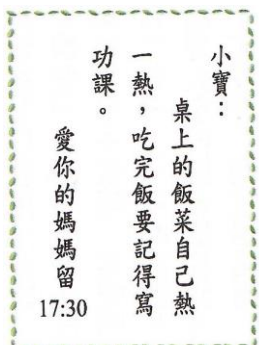 小寶：
桌上的飯菜自己熱
一熱，吃完飯要記得寫
功課。
愛你的媽媽留
17:30